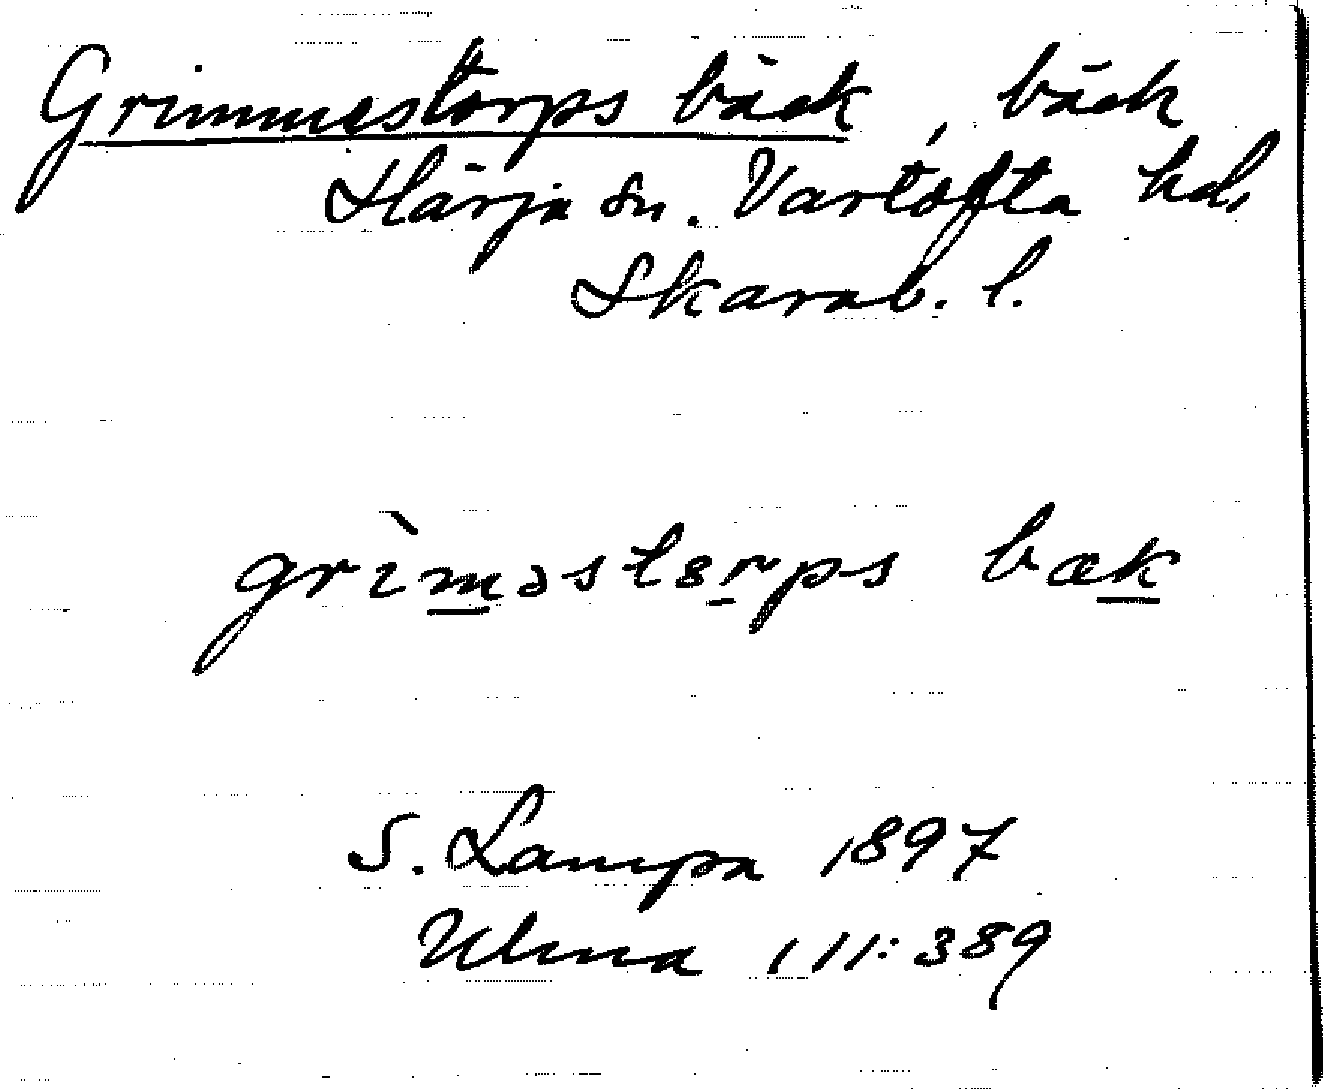 Grimmestorps bäck, bäck
Härja sn. Vartofta hd,
Skarab. l.
grìməstɵrps bæk
S. Lampa 1897
Ulma 111:389